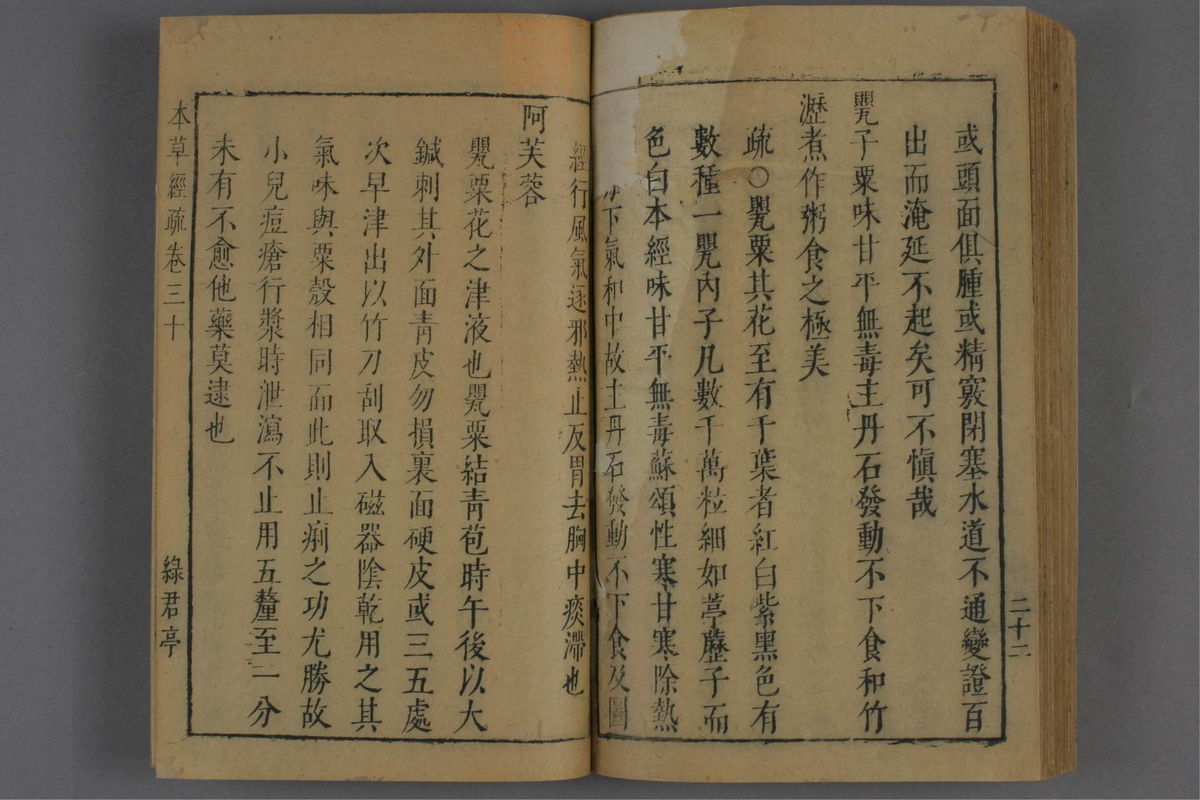 或頭面俱腫或精竅閉塞水道不通變證百
出而淹延不起矣可不慎哉
甖子粟味甘平無毒主丹石發動不下食和竹
瀝煮作粥食之極美
疏○甖粟其花至有千葉者紅白紫黑色有
數種一甖內子凡數千萬粒細如葶藶子而
色白本經味甘平無毒蘇頌性寒甘寒除熱
下氣和中故主丹石發動不下食及圖
經行風氣逐邪熱止反胃去胸中痰滯也
阿芙蓉
甖粟花之津液也甖粟結青苞時午後以大
鍼刺其外面青皮勿損裏面硬皮或三五處
次早津出以竹刀刮取入磁器陰乾用之其
氣味與粟殼相同而此則止痢之功尤勝故
小兒痘瘡行漿時泄瀉不止用五釐至一分
未有不愈他藥莫逮也
本草經疏卷三十
綠君亭
二十二